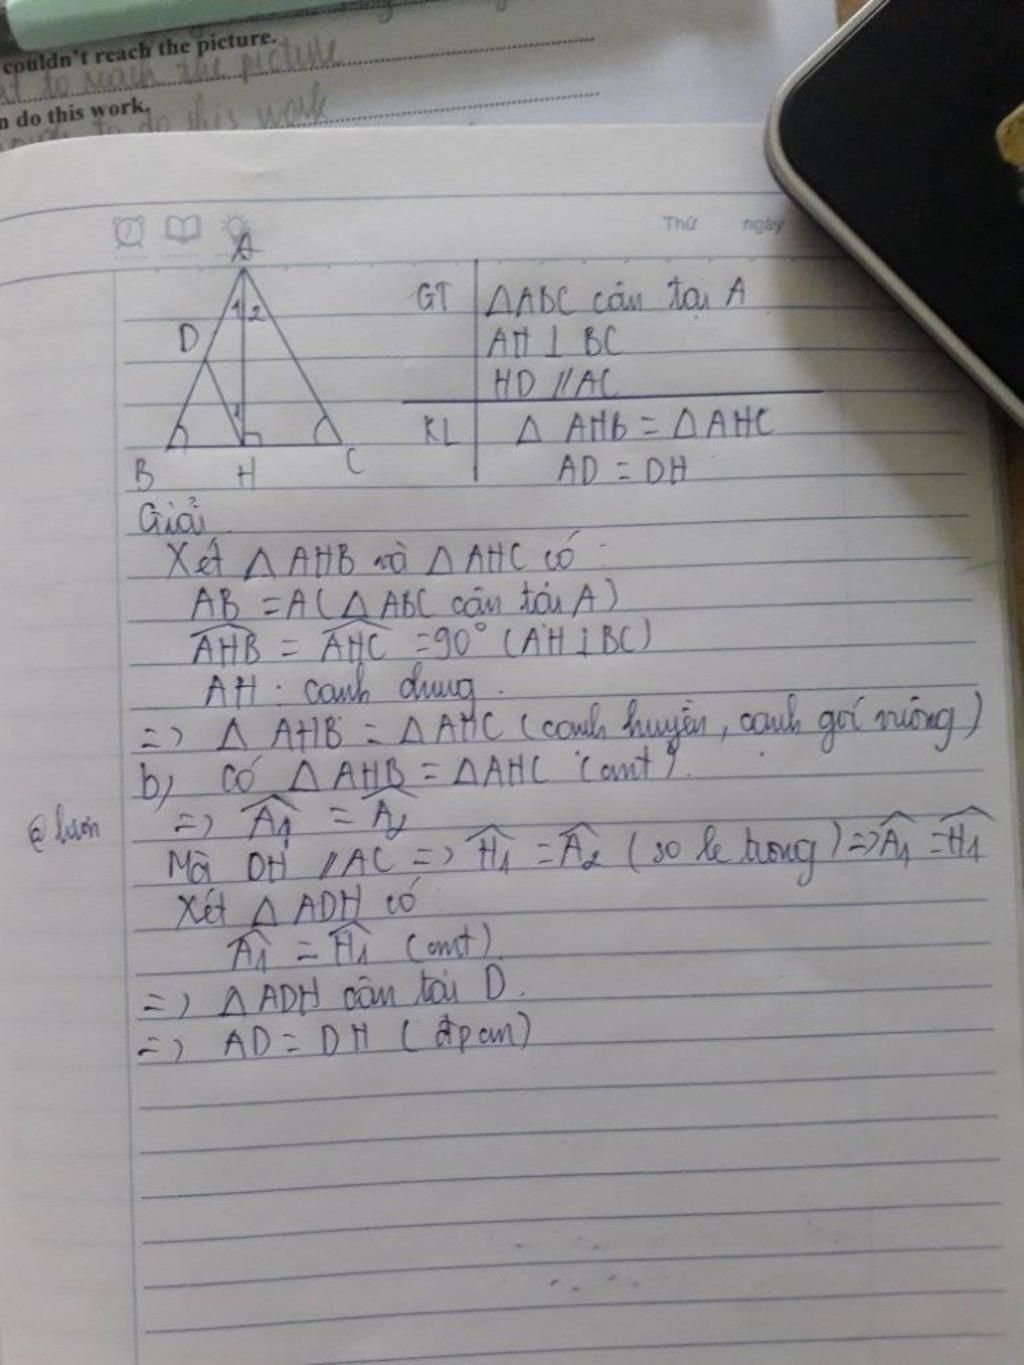 couldn't reach the picture.
to reach the picture
n do this work.
to do this work
Thứ ngày
A
1 2
D
1
B H C
GT ΔABC cân tại A
AH ⊥ BC
HD // AC
KL Δ AHB = Δ AHC
AD = DH
Giải
Xét Δ AHB và Δ AHC có :
AB = AC (Δ ABC cân tại A)
\widehat{AHB} = \widehat{AHC} = 90° (AH ⊥ BC)
AH : cạnh chung.
=> Δ AHB = Δ AHC (cạnh huyền, cạnh góc vuông)
b) Có Δ AHB = Δ AHC (cmt)
=> \widehat{A1} = \widehat{A2}
Mà DH // AC => \widehat{H1} = \widehat{A2} (so le trong) => \widehat{A1} = \widehat{H1}
Xét Δ ADH có
\widehat{A1} = \widehat{H1} (cmt)
=> Δ ADH cân tại D.
=> AD = DH (đpcm)